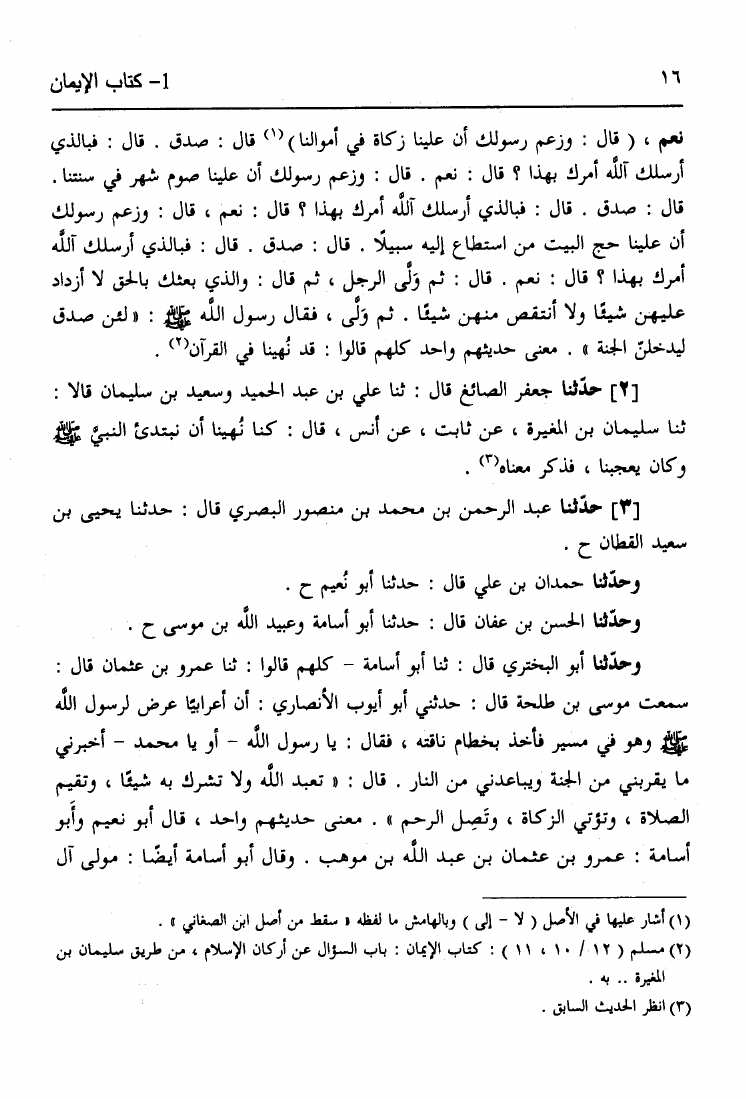 ١٦
1- كتاب الإيمان
نعم ، ( قال : وزعم رسولك أن علينا زكاة في أموالنا)(١) قال : صدق . قال : فبالذي
أرسلك آللَّه أمرك بهذا ؟ قال : نعم . قال : وزعم رسولك أن علينا صوم شهر في سنتنا .
قال : صدق . قال : فبالذي أرسلك آللَّه أمرك بهذا ؟ قال : نعم ، قال : وزعم رسولك
أن علينا حج البيت من استطاع إليه سبيلًا . قال : صدق . قال : فبالذي أرسلك آللَّه
أمرك بهذا ؟ قال : نعم . قال : ثم وَلَّى الرجل ، ثم قال : والذي بعثك بالحق لا أزداد
عليهن شيئًا ولا أنتقص منهن شيئًا . ثم وَلَّى ، فقال رسول اللَّه ﷺ : « لئن صدق
ليدخلنّ الجنة » . معنى حديثهم واحد كلهم قالوا : قد نُهينا في القرآن(٢) .
[٢] حدّثنا جعفر الصائغ قال : ثنا علي بن عبد الحميد وسعيد بن سليمان قالا :
ثنا سليمان بن المغيرة ، عن ثابت ، عن أنس ، قال : كنا نُهينا أن نبتدئ النبيَّ ﷺ
وكان يعجبنا ، فذكر معناه(٣) .
[٣] حدّثنا عبد الرحمن بن محمد بن منصور البصري قال : حدثنا يحيى بن
سعيد القطان ح .
وحدّثنا حمدان بن علي قال : حدثنا أبو نُعيم ح .
وحدّثنا الحسن بن عفان قال : حدثنا أبو أسامة وعبيد اللَّه بن موسى ح .
وحدّثنا أبو البختري قال : ثنا أبو أسامة - كلهم قالوا : ثنا عمرو بن عثمان قال :
سمعت موسى بن طلحة قال : حدثني أبو أيوب الأنصاري : أن أعرابيًا عرض لرسول اللَّه
ﷺ وهو في مسير فأخذ بخطام ناقته ، فقال : يا رسول اللَّه - أو يا محمد - أخبرني
ما يقربني من الجنة ويباعدني من النار . قال : « تعبد اللَّه ولا تشرك به شيئًا ، وتقيم
الصلاة ، وتؤتي الزكاة ، وتَصِل الرحم » . معنى حديثهم واحد ، قال أبو نعيم وأَبو
أسامة : عمرو بن عثمان بن عبد اللَّه بن موهب . وقال أبو أسامة أيضًا : مولى آل
(١) أشار عليها في الأصل ( لا - إلى ) وبالهامش ما لفظه « سقط من أصل ابن الصغاني » .
(٢) مسلم ( ١٢ / ١٠ ، ١١ ) : كتاب الإيمان : باب السؤال عن أركان الإسلام ، من طريق سليمان بن
المغيرة .. به .
(٣) انظر الحديث السابق .